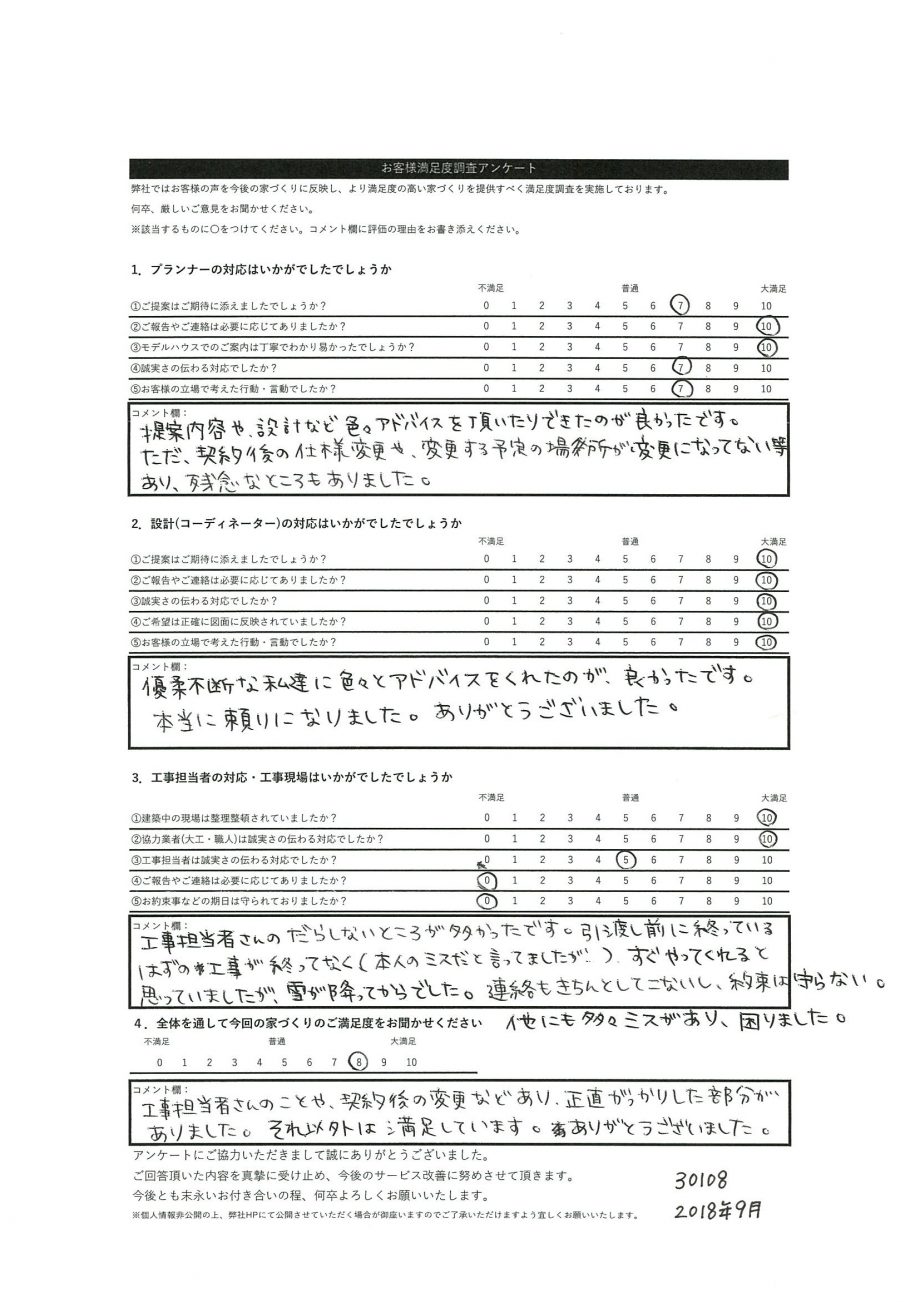 お客様満足度調査アンケート
弊社ではお客様の声を今後の家づくりに反映し、より満足度の高い家づくりを提供すべく満足度調査を実施しております。
何卒、厳しいご意見をお聞かせください。
※該当するものに〇をつけてください。コメント欄に評価の理由をお書き添えください。
1．プランナーの対応はいかがでしたでしょうか
不満足 普通 大満足
①ご提案はご期待に添えましたでしょうか？ 0 1 2 3 4 5 6 7 8 9 10
②ご報告やご連絡は必要に応じてありましたか？ 0 1 2 3 4 5 6 7 8 9 10
③モデルハウスでのご案内は丁寧でわかり易かったでしょうか？ 0 1 2 3 4 5 6 7 8 9 10
④誠実さの伝わる対応でしたか？ 0 1 2 3 4 5 6 7 8 9 10
⑤お客様の立場で考えた行動・言動でしたか？ 0 1 2 3 4 5 6 7 8 9 10
コメント欄：
提案内容や、設計など色々アドバイスを頂いたりできたのが良かったです。
ただ、契約後の仕様変更や、変更する予定の場所が変更になってない等
あり、残念なところもありました。
2．設計(コーディネーター)の対応はいかがでしたでしょうか
不満足 普通 大満足
①ご提案はご期待に添えましたでしょうか？ 0 1 2 3 4 5 6 7 8 9 10
②ご報告やご連絡は必要に応じてありましたか？ 0 1 2 3 4 5 6 7 8 9 10
③誠実さの伝わる対応でしたか？ 0 1 2 3 4 5 6 7 8 9 10
④ご希望は正確に図面に反映されていましたか？ 0 1 2 3 4 5 6 7 8 9 10
⑤お客様の立場で考えた行動・言動でしたか？ 0 1 2 3 4 5 6 7 8 9 10
コメント欄：
優柔不断な私達に色々とアドバイスをくれたのが、良かったです。
本当に頼りになりました。ありがとうございました。
3．工事担当者の対応・工事現場はいかがでしたでしょうか
不満足 普通 大満足
①建築中の現場は整理整頓されていましたか？ 0 1 2 3 4 5 6 7 8 9 10
②協力業者(大工・職人)は誠実さの伝わる対応でしたか？ 0 1 2 3 4 5 6 7 8 9 10
③工事担当者は誠実さの伝わる対応でしたか？ 0 1 2 3 4 5 6 7 8 9 10
④ご報告やご連絡は必要に応じてありましたか？ 0 1 2 3 4 5 6 7 8 9 10
⑤お約束事などの期日は守られておりましたか？ 0 1 2 3 4 5 6 7 8 9 10
コメント欄：
工事担当者さんのだらしないところが多かったです。引渡し前に終っている
はずの工事が終ってなく(本人のミスだと言ってましたが…)すぐやってくれると
思っていましたが、雪が降ってからでした。連絡もきちんとしてこないし、約束は守らない。
他にも多々ミスがあり、困りました。
4．全体を通して今回の家づくりのご満足度をお聞かせください
不満足 普通 大満足
0 1 2 3 4 5 6 7 8 9 10
コメント欄：
工事担当者さんのことや、契約後の変更などあり、正直がっかりした部分が
ありました。それ以外は満足しています。ありがとうございました。
アンケートにご協力いただきまして誠にありがとうございました。
ご回答頂いた内容を真摯に受け止め、今後のサービス改善に努めさせて頂きます。
今後とも末永いお付き合いの程、何卒よろしくお願いいたします。
※個人情報非公開の上、弊社HPにて公開させていただく場合が御座いますのでご了承いただけますよう宜しくお願いいたします。
30108
2018年9月